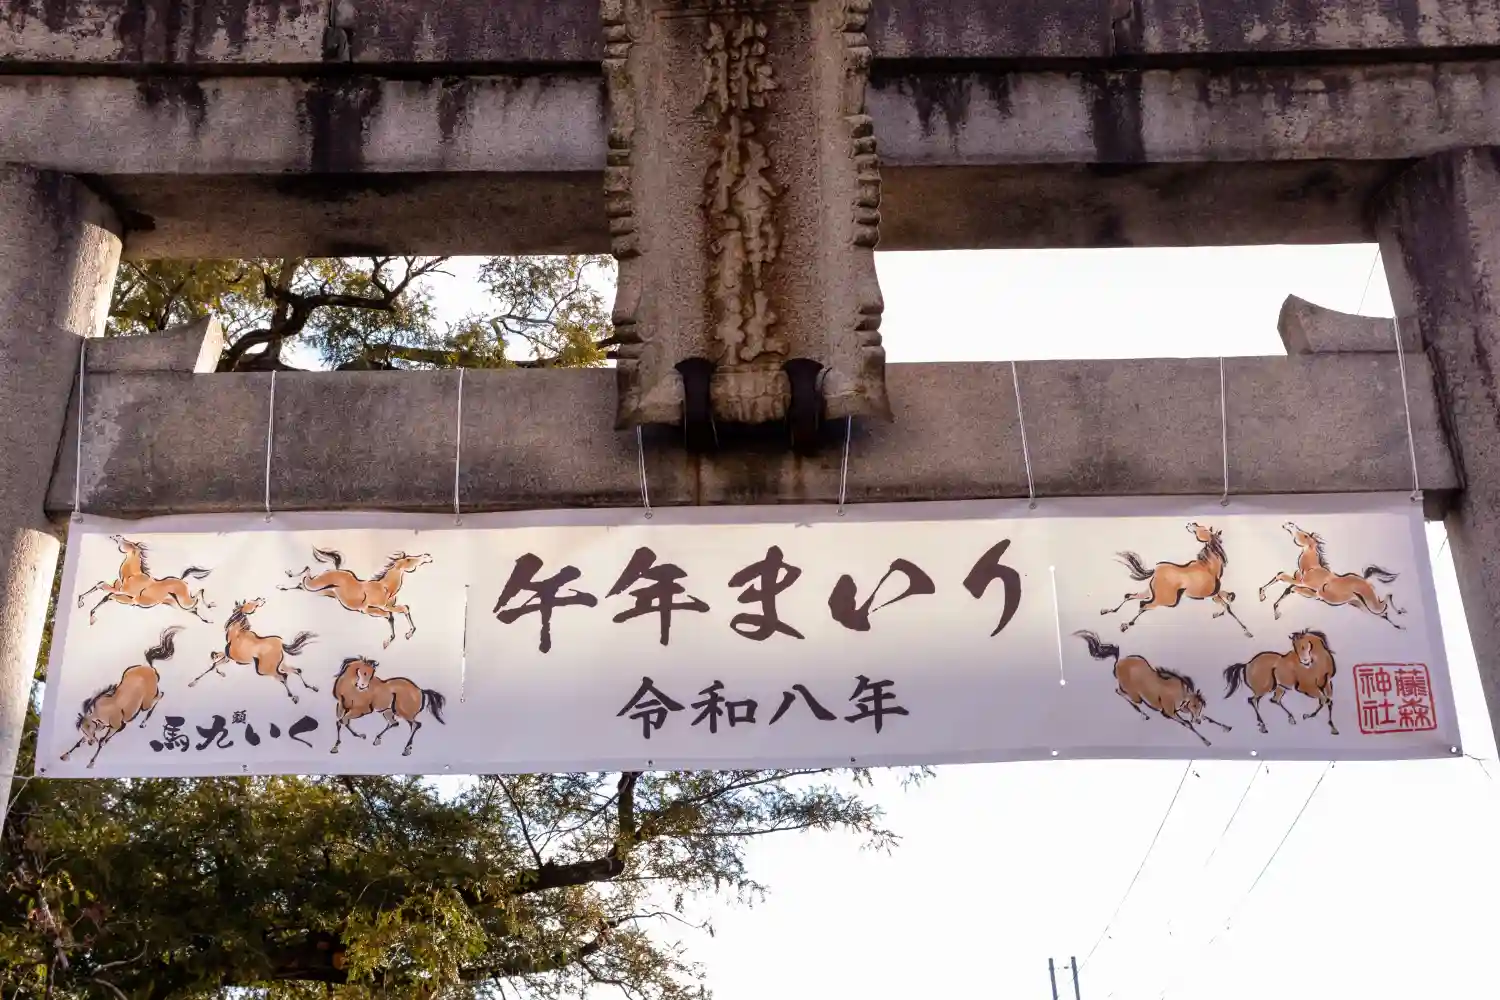 藤森神社
午年まいり
令和八年
馬九いく
願
藤森
神社